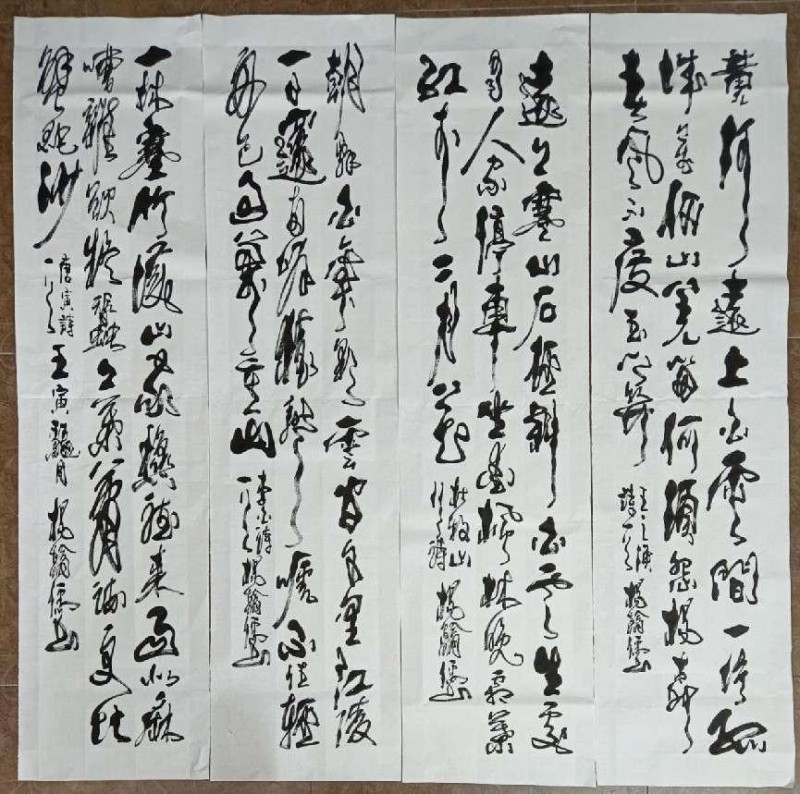 黄河遠上白雲間一片孤
城萬仞山羌笛何須怨楊柳
春風不度玉門關
王之渙
詩一首 楊翰儒書
遠上寒山石徑斜白雲生處
有人家停車坐愛楓林晚霜葉
紅於二月花
杜牧山
行詩 楊翰儒書
朝辭白帝彩雲間千里江陵
一日還兩岸猿聲啼不住輕
舟已過萬重山
李白詩
一首 楊翰儒書
一林寒竹護山家秋夜來聽雨似麻
嘈雜欲疑蠶上葉蕭疏更比
蟹爬沙
唐寅詩
一首 壬寅臘月 楊翰儒書